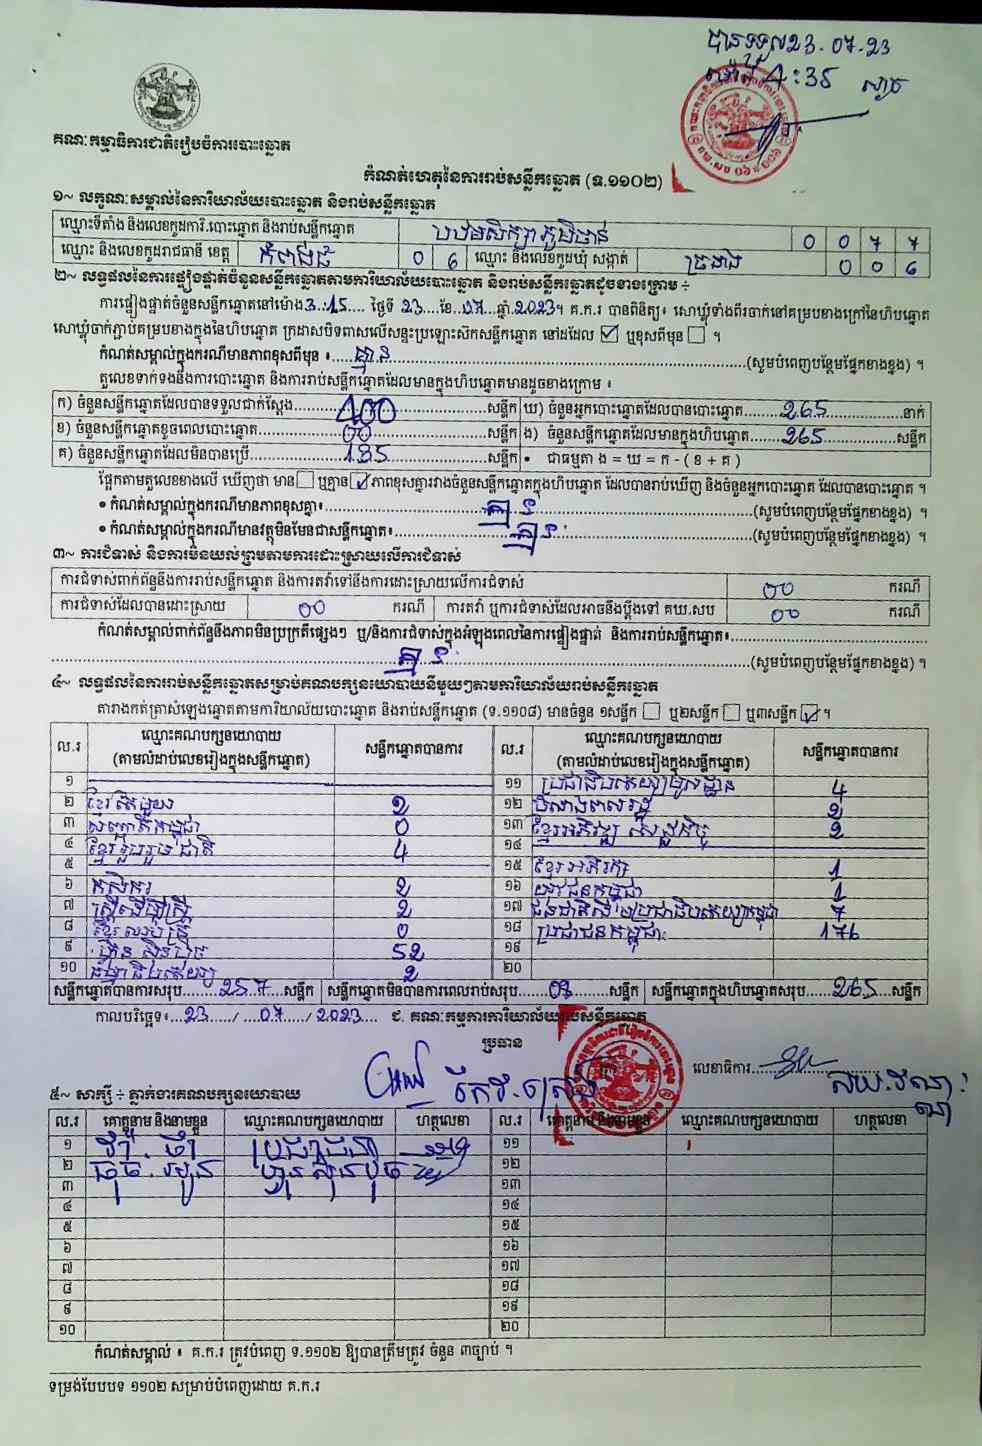 បានទទួល 23.07.23
ម៉ោង 4:35
គណៈកម្មាធិការជាតិរៀបចំការបោះឆ្នោត
កំណត់ហេតុនៃការរាប់សន្លឹកឆ្នោត (ទ.១១០២)
១~ លក្ខណៈសម្គាល់នៃការិយាល័យបោះឆ្នោត និងរាប់សន្លឹកឆ្នោត
ឈ្មោះទីតាំង និងលេខកូដការិ.បោះឆ្នោត និងរាប់សន្លឹកឆ្នោត បឋមសិក្សា ភូមិចាន់ 0 0 7 7
ឈ្មោះ និងលេខកូដរាជធានី ខេត្ត កំពង់ធំ 0 6 ឈ្មោះ និងលេខកូដឃុំ សង្កាត់ 0 0 6
២~ លទ្ធផលនៃការផ្ទៀងផ្ទាត់ចំនួនសន្លឹកឆ្នោតតាមការិយាល័យបោះឆ្នោត និងរាប់សន្លឹកឆ្នោតដូចខាងក្រោម ÷
ការផ្ទៀងផ្ទាត់ចំនួនសន្លឹកឆ្នោតនៅម៉ោង 3:15 ថ្ងៃទី 23 ខែ 07 ឆ្នាំ 2023។ គ.ក.រ បានពិនិត្យ៖ សោឃ្លុំទាំងពីរចាក់នៅគម្របខាងក្រៅនៃហិបឆ្នោត
សោឃ្លុំចាក់ភ្ជាប់គម្របខាងក្នុងនៃហិបឆ្នោត ក្រដាសបិទពាសលើសន្ទះប្រឡោះស៊កសន្លឹកឆ្នោត នៅដដែល ☑ ឬខុសពីមុន ☐ ។
កំណត់សម្គាល់ក្នុងករណីមានភាពខុសពីមុន ៖ គ្មាន (សូមបំពេញបន្ថែមផ្នែកខាងខ្នង) ។
តួលេខទាក់ទងនឹងការបោះឆ្នោត និងការរាប់សន្លឹកឆ្នោតដែលមានក្នុងហិបឆ្នោតមានដូចខាងក្រោម ៖
ក) ចំនួនសន្លឹកឆ្នោតដែលបានទទួលជាក់ស្តែង 400 សន្លឹក ឃ) ចំនួនអ្នកបោះឆ្នោតដែលបានបោះឆ្នោត 265 នាក់
ខ) ចំនួនសន្លឹកឆ្នោតខូចពេលបោះឆ្នោត 00 សន្លឹក ង) ចំនួនសន្លឹកឆ្នោតដែលមានក្នុងហិបឆ្នោត 265 សន្លឹក
គ) ចំនួនសន្លឹកឆ្នោតដែលមិនបានប្រើ 135 សន្លឹក • ជាធម្មតា ង = ឃ = ក - ( ខ + គ )
ផ្អែកតាមតួលេខខាងលើ ឃើញថា មាន ☐ ឬគ្មាន ☑ ភាពខុសគ្នារវាងចំនួនសន្លឹកឆ្នោតក្នុងហិបឆ្នោត ដែលបានរាប់ឃើញ និងចំនួនអ្នកបោះឆ្នោត ដែលបានបោះឆ្នោត ។
• កំណត់សម្គាល់ក្នុងករណីមានភាពខុសគ្នា៖ គ្មាន (សូមបំពេញបន្ថែមផ្នែកខាងខ្នង) ។
• កំណត់សម្គាល់ក្នុងករណីមានវត្ថុមិនមែនជាសន្លឹកឆ្នោត៖ គ្មាន (សូមបំពេញបន្ថែមផ្នែកខាងខ្នង) ។
៣~ ការជំទាស់ និងការមិនយល់ព្រមតាមការដោះស្រាយលើការជំទាស់
ការជំទាស់ពាក់ព័ន្ធនឹងការរាប់សន្លឹកឆ្នោត និងការតវ៉ាទៅនឹងការដោះស្រាយលើការជំទាស់ 00 ករណី
ការជំទាស់ដែលបានដោះស្រាយ 00 ករណី ការតវ៉ា ឬការជំទាស់ដែលអាចនឹងប្តឹងទៅ គឃ.សប 00 ករណី
កំណត់សម្គាល់ពាក់ព័ន្ធនឹងភាពមិនប្រក្រតីផ្សេងៗ ឬ/និងការជំទាស់ក្នុងអំឡុងពេលនៃការផ្ទៀងផ្ទាត់ និងការរាប់សន្លឹកឆ្នោត៖
គ្មាន (សូមបំពេញបន្ថែមផ្នែកខាងខ្នង) ។
៤~ លទ្ធផលនៃការរាប់សន្លឹកឆ្នោតសម្រាប់គណបក្សនយោបាយនីមួយៗតាមការិយាល័យរាប់សន្លឹកឆ្នោត
តារាងកត់ត្រាសំឡេងឆ្នោតតាមការិយាល័យបោះឆ្នោត និងរាប់សន្លឹកឆ្នោត (ទ.១១០៨) មានចំនួន ១សន្លឹក ☐ ឬ២សន្លឹក ☐ ឬ៣សន្លឹក ☑ ។
ល.រ ឈ្មោះគណបក្សនយោបាយ (តាមលំដាប់លេខរៀងក្នុងសន្លឹកឆ្នោត) សន្លឹកឆ្នោតបានការ ល.រ ឈ្មោះគណបក្សនយោបាយ (តាមលំដាប់លេខរៀងក្នុងសន្លឹកឆ្នោត) សន្លឹកឆ្នោតបានការ
១ ១១ ប្រជាធិបតេយ្យមូលដ្ឋាន 4
២ ខ្មែរតែមួយ 2 ១២ 2
៣ សញ្ជាតិកម្ពុជា 0 ១៣ ខ្មែរអភិវឌ្ឍសេដ្ឋកិច្ច 2
៤ ខ្មែររួបរួមជាតិ 4 ១៤
៥ ១៥ ខ្មែរអភិរក្ស 1
៦ កសិករ 2 ១៦ យុវជនកម្ពុជា 1
៧ ស្ត្រីដើម្បីស្ត្រី 2 ១៧ ជនជាតិដើមប្រជាធិបតេយ្យកម្ពុជា 7
៨ 0 ១៨ ប្រជាជនកម្ពុជា 176
៩ ហ៊្វុនស៊ិនប៉ិច 52 ១៩
១០ ធម្មាធិបតេយ្យ 2 ២០
សន្លឹកឆ្នោតបានការសរុប 257 សន្លឹក សន្លឹកឆ្នោតមិនបានការពេលរាប់សរុប 08 សន្លឹក សន្លឹកឆ្នោតក្នុងហិបឆ្នោតសរុប 265 សន្លឹក
កាលបរិច្ឆេទ៖ 23 / 07 / 2023 ជ. គណៈកម្មការការិយាល័យរាប់សន្លឹកឆ្នោត
ប្រធាន
លេខាធិការ
៥~ សាក្សី ÷ ភ្នាក់ងារគណបក្សនយោបាយ
ល.រ គោត្តនាម និងនាមខ្លួន ឈ្មោះគណបក្សនយោបាយ ហត្ថលេខា ល.រ គោត្តនាម និងនាមខ្លួន ឈ្មោះគណបក្សនយោបាយ ហត្ថលេខា
១ ប្រជាជន ១១
២ ហ្វុនស៊ិនប៉ិច ១២
៣ ១៣
៤ ១៤
៥ ១៥
៦ ១៦
៧ ១៧
៨ ១៨
៩ ១៩
១០ ២០
កំណត់សម្គាល់ ៖ គ.ក.រ ត្រូវបំពេញ ទ.១១០២ ឱ្យបានត្រឹមត្រូវ ចំនួន ៣ច្បាប់ ។
ទម្រង់បែបបទ ១១០២ សម្រាប់បំពេញដោយ គ.ក.រ